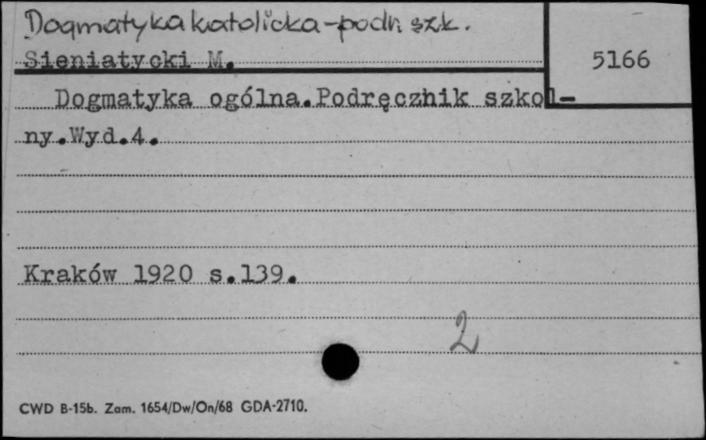 Dogmatyka katolicka - podr. szk.
Sieniatycki M.
5166
Dogmatyka ogólna. Podręcznik szkol-
ny. Wyd. 4.
Kraków 1920 s. 139.
2
CWD B-15b. Zam. 1654/Dw/On/68 GDA-2710.